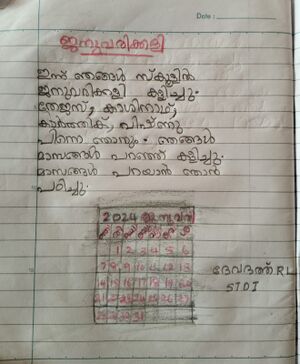 Date :
ജനുവരിക്കളി
ഇന്ന് ഞങ്ങൾ സ്കൂളിൽ
ജനുവരിക്കളി കളിച്ചു.
തേജസ്, കാശിനാഥ്,
കാർത്തിക്, വിഷ്ണു
പിന്നെ ഞാനും. ഞങ്ങൾ
മാസങ്ങൾ പറഞ്ഞ് കളിച്ചു.
മാസങ്ങൾ പറയാൻ ഞാൻ
പഠിച്ചു.
2024 ജനുവരി
1 2 3 4 5 6
7 8 9 10 11 12 13
14 15 16 17 18 19 20
21 22 23 24 25 26 27
28 29 30 31
ദേവദത്ത്. R.L
STD I